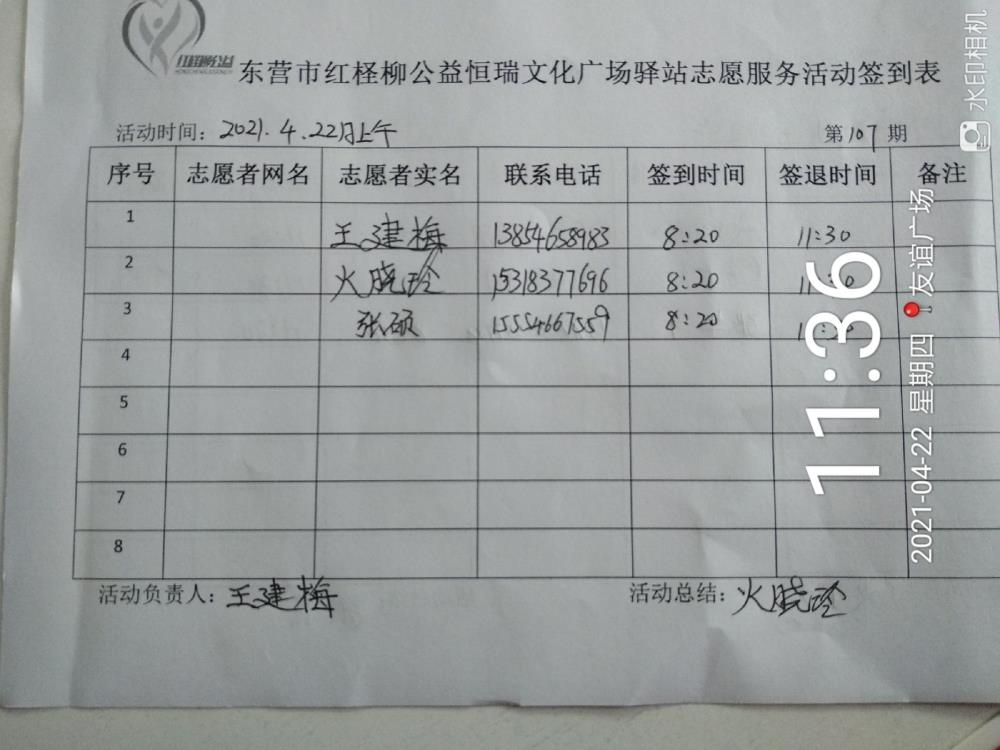 红柽柳公益
东营市红柽柳公益恒瑞文化广场驿站志愿服务活动签到表
活动时间：2021.4.22日上午 第107期
序号 志愿者网名 志愿者实名 联系电话 签到时间 签退时间 备注
1 王建梅 13854658983 8:20 11:30
2 火晓玲 15318377696 8:20
3 张硕 15554667559 8:20
4
5
6
7
8
活动负责人：王建梅 活动总结：火晓玲
11:36
2021-04-22 星期四 友谊广场
水印相机